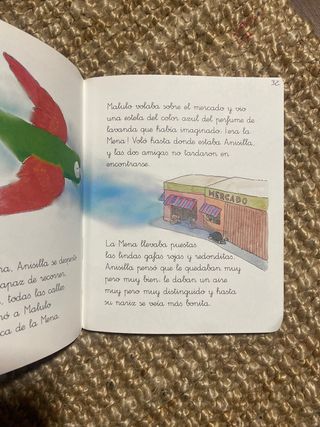 na, Anisilla se despertó
capaz de recorrer
, todas las calle
mó a Malulo
ca de la Mena.
32
Malulo volaba sobre el mercado y vio
una estela del color azul del perfume de
lavanda que había imaginado. ¡era la
Mena! Voló hasta donde estaba Anisilla,
y las dos amigas no tardaron en
encontrarse.
MERCADO
La Mena llevaba puestas
las lindas gafas rojas y redonditas.
Anisilla pensó que le quedaban muy
pero muy bien, le daban un aire
muy pero muy distinguido y hasta
su nariz se veía más bonita.